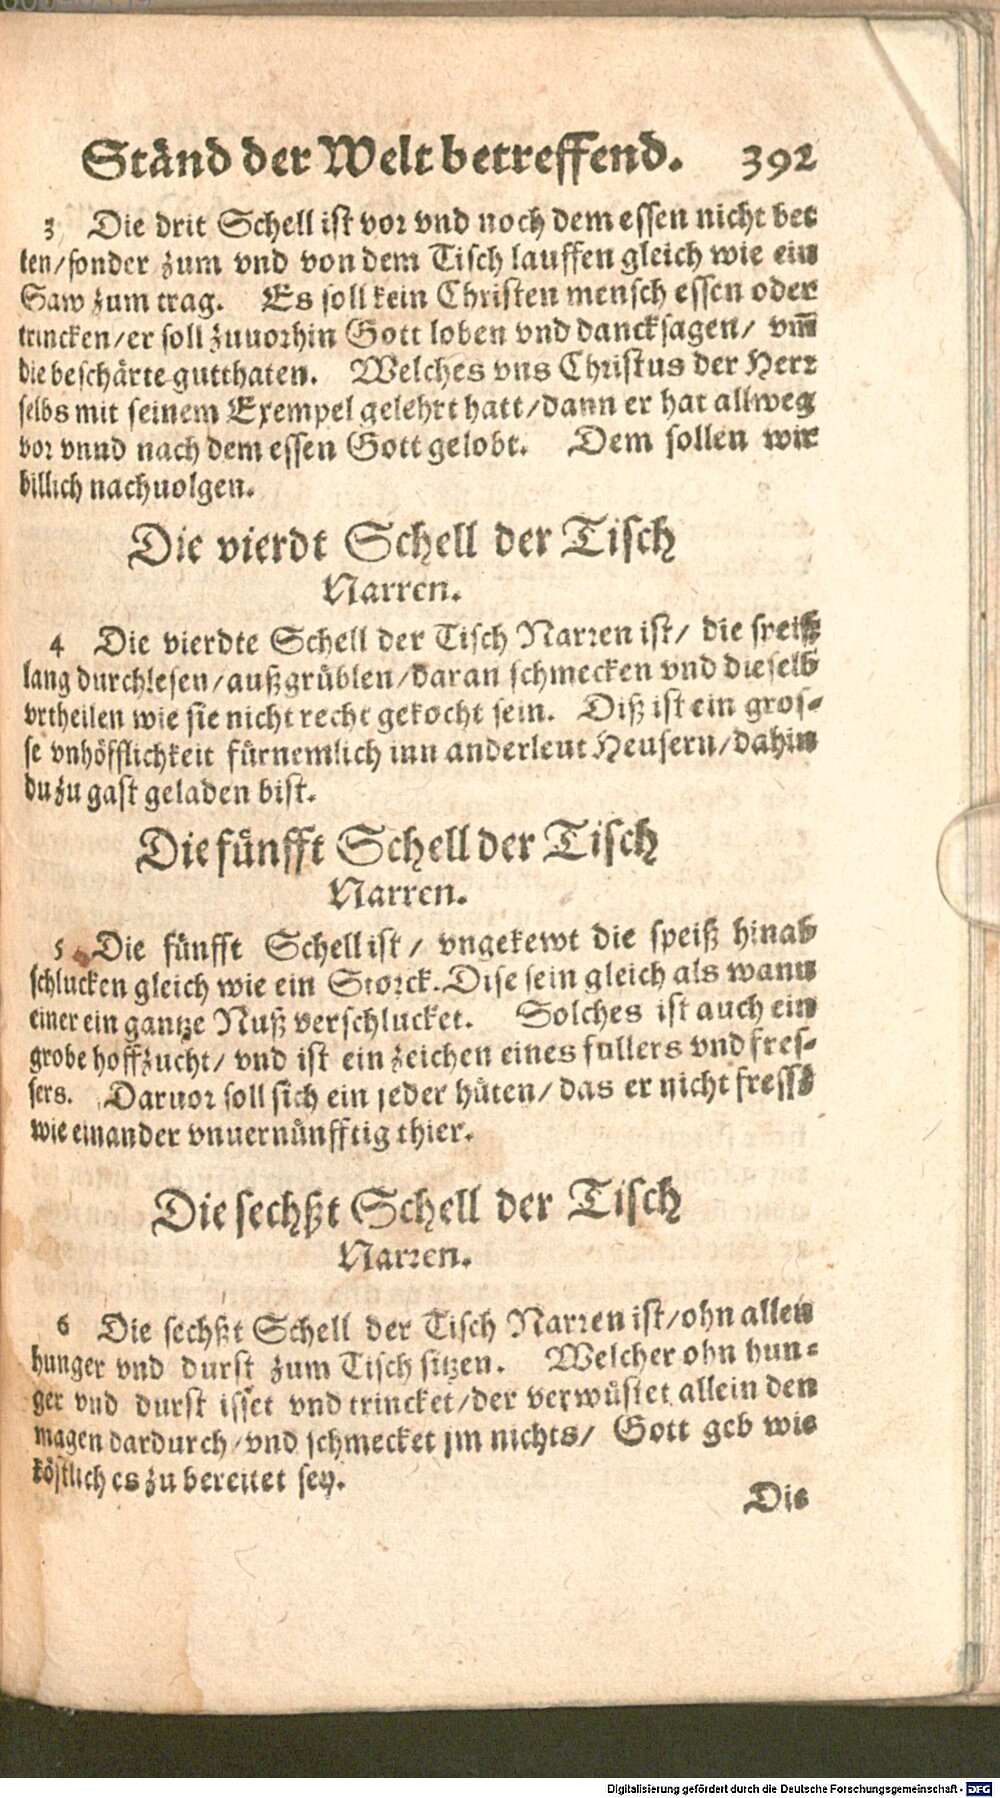 Ständ der Welt betreffend. 392
3 Die drit Schell ist vor vnd noch dem essen nicht bet
ten/sonder zum vnd von dem Tisch lauffen gleich wie ein
Saw zum trag. Es soll kein Christen mensch essen oder
trincken/er soll zuuorhin Gott loben vnd dancksagen/ vm̃
die beschärte gutthaten. Welches vns Christus der Herr
selbs mit seinem Exempel gelehrt hatt/dann er hat allweg
vor vnnd nach dem essen Gott gelobt. Dem sollen wir
billich nachuolgen.
Die vierdt Schell der Tisch
Narren.
4 Die vierdte Schell der Tisch Narren ist/ die speiß
lang durchlesen/außgrüblen/daran schmecken vnd dieselb
vrtheilen wie sie nicht recht gekocht sein. Diß ist ein gros-
se vnhöfflichkeit fürnemlich inn anderleut Heusern/dahin
du zu gast geladen bist.
Die fünfft Schell der Tisch
Narren.
5 Die fünfft Schell ist/ vngekewt die speiß hinab
schlucken gleich wie ein Storck. Dise sein gleich als wann
einer ein gantze Nuß verschlucket. Solches ist auch ein
grobe hoffzucht/ vnd ist ein zeichen eines fullers vnd fres-
sers. Daruor soll sich ein jeder hüten/das er nicht fresse
wie ein ander vnuernünfftig thier.
Die sechßt Schell der Tisch
Narren.
6 Die sechßt Schell der Tisch Narren ist/ohn allen
hunger vnd durst zum Tisch sitzen. Welcher ohn hun-
ger vnd durst isset vnd trincket/der verwüstet allein den
magen dardurch/vnd schmecket jm nichts/ Gott geb wie
köstlich es zu bereitet sey.
Die
Digitalisierung gefördert durch die Deutsche Forschungsgemeinschaft - DFG